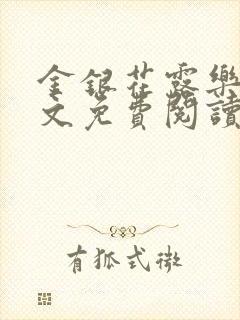 金銀花露樂
文免費閱讀
有狐式微